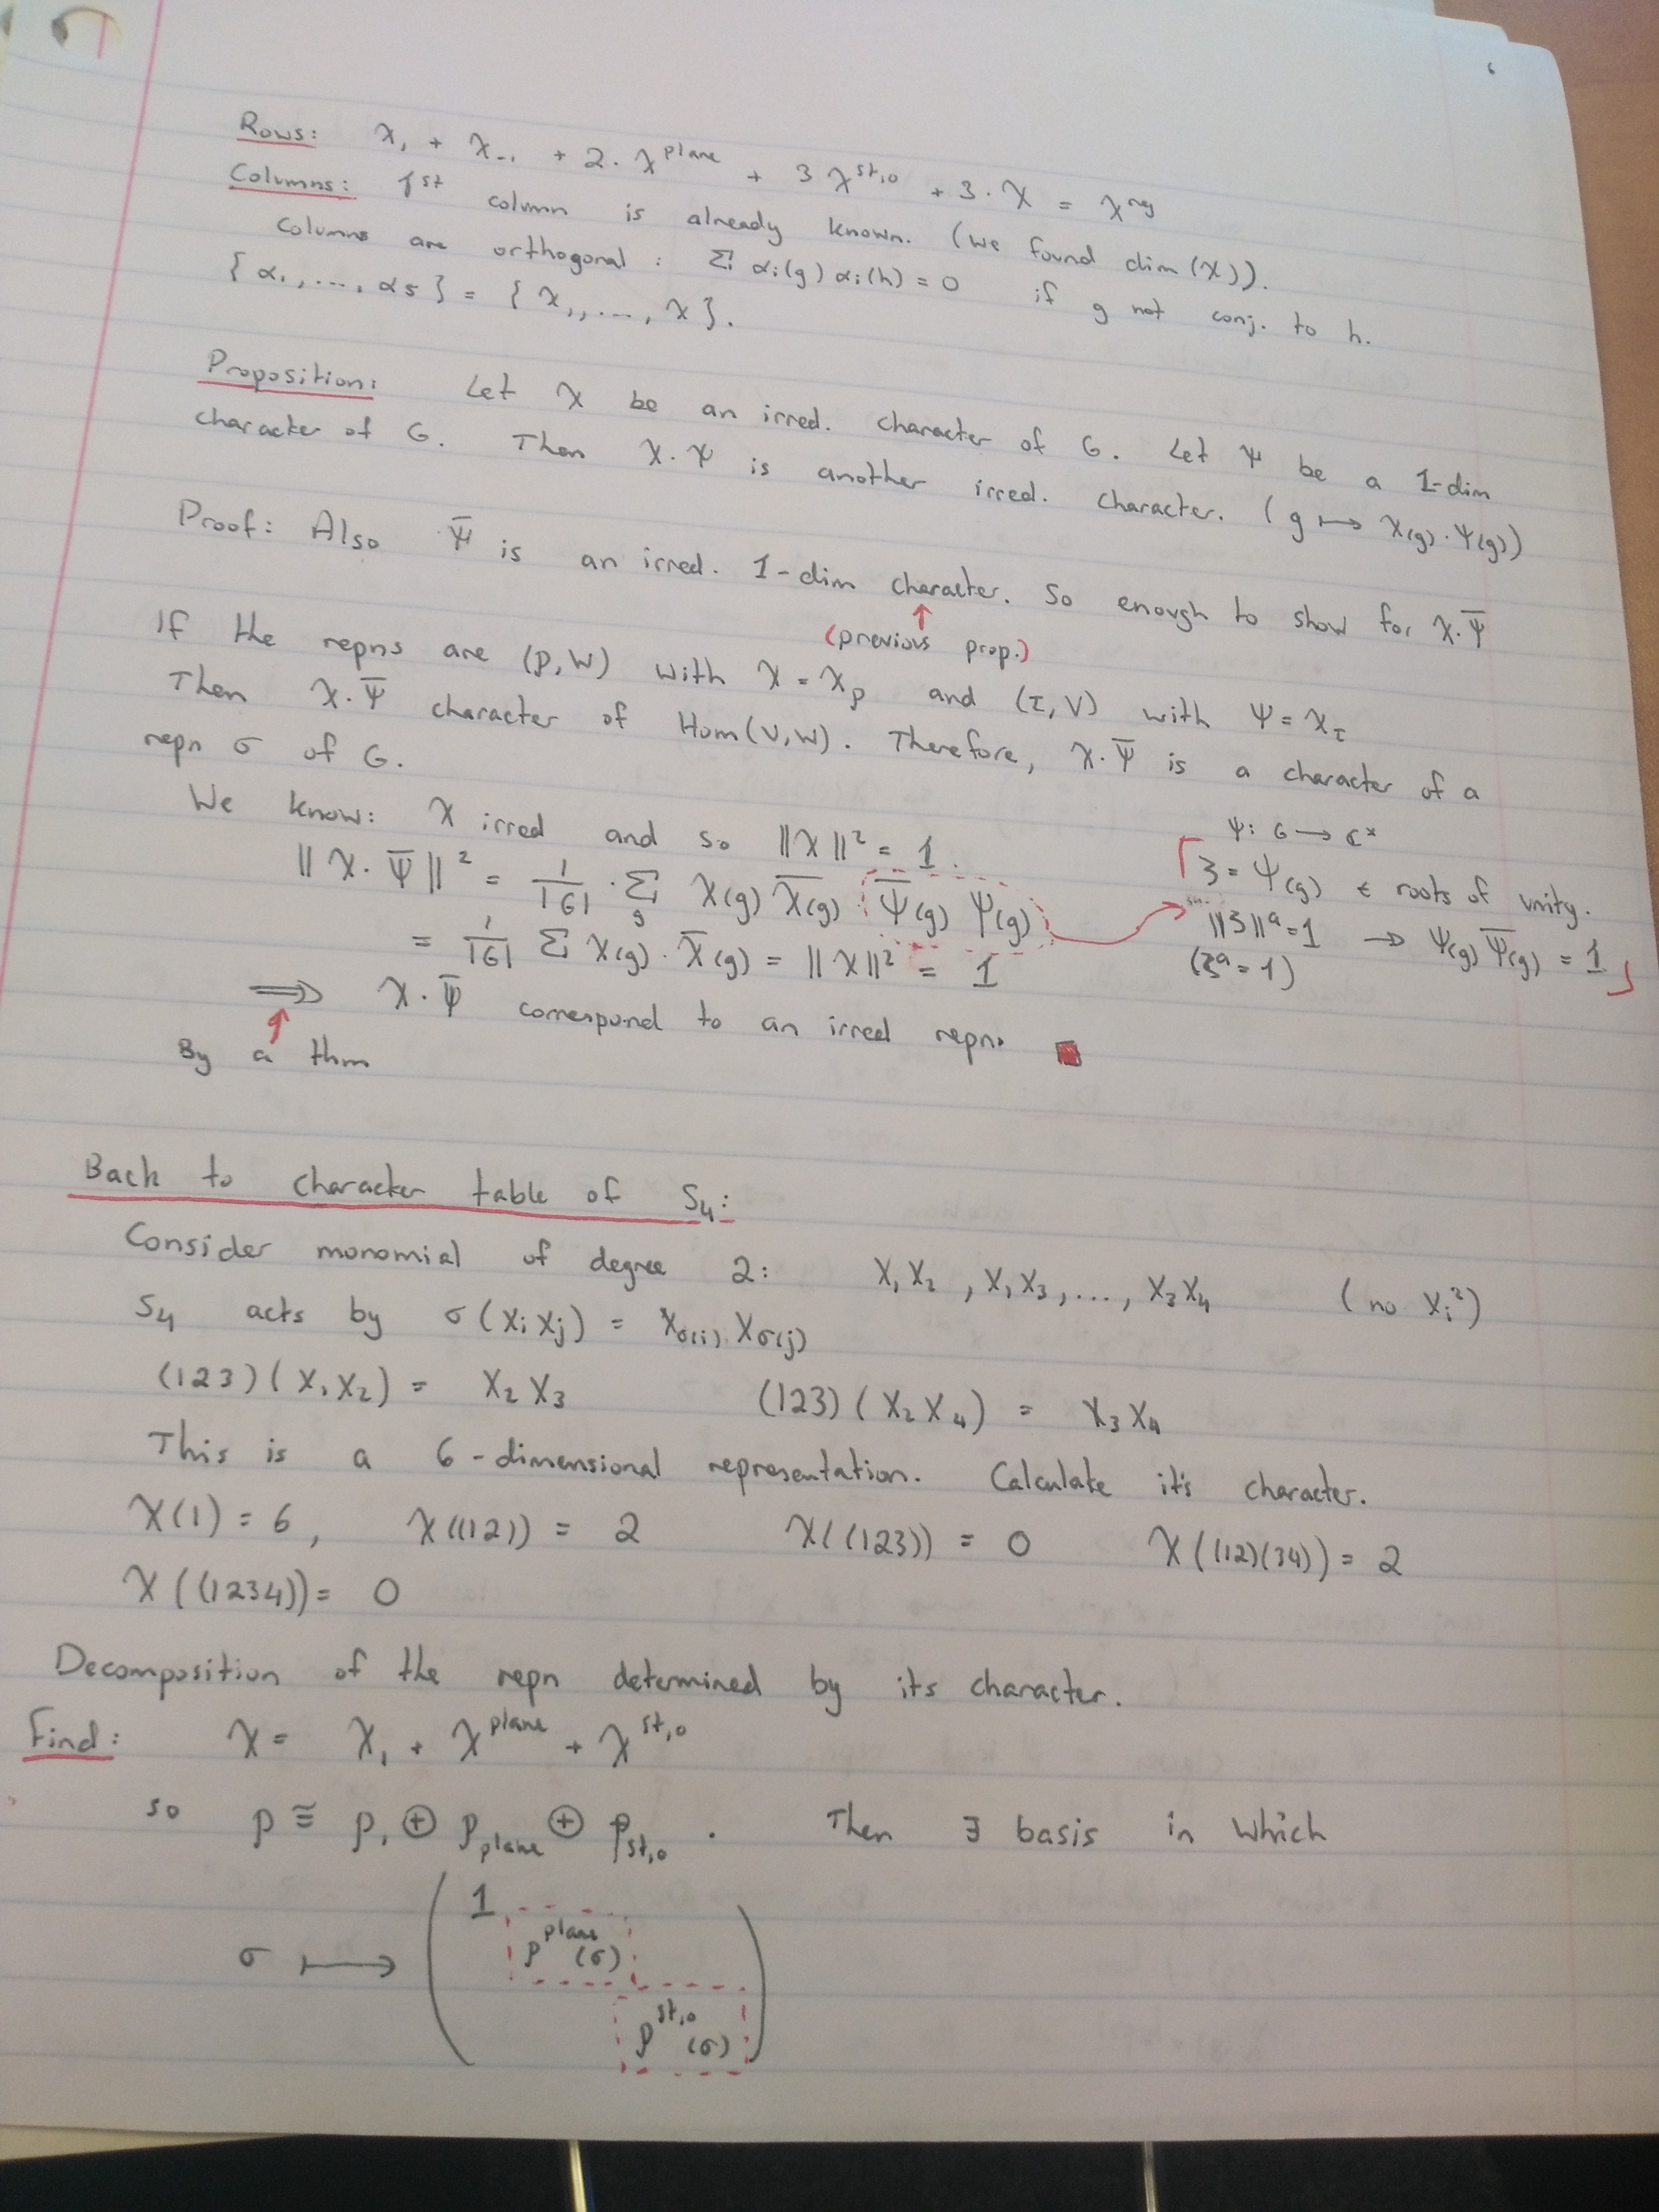 Rows: χ₁ + χ₋₁ + 2·χ^plane + 3χ^st,0 + 3·χ = χ^reg
Columns: 1st column is already known. (we found dim(χ)).
Columns are orthogonal: Σ αᵢ(g) αᵢ(h) = 0 if g not conj. to h.
{α₁, ..., α₅} = {χ₁, ..., χ}.
Proposition: Let χ be an irred. character of G. Let Ψ be a 1-dim
character of G. Then χ·Ψ is another irred. character. (g ↦ χ(g)·Ψ(g))
Proof: Also Ψ̅ is an irred. 1-dim character. So enough to show for χ·Ψ̅
(previous prop.)
If the repns are (ρ, W) with χ = χ_ρ and (τ, V) with Ψ = χ_τ
Then χ·Ψ̅ character of Hom(V,W). Therefore, χ·Ψ̅ is a character of a
repn σ of G.
We know: χ irred and so ||χ||² = 1.
Ψ: G → C^x
||χ·Ψ̅||² = 1/|G| · Σ_g χ(g) χ̅(g) Ψ̅(g) Ψ(g)
ζ = Ψ(g) ∈ roots of unity.
= 1/|G| Σ χ(g)·χ̅(g) = ||χ||² = 1
||ζ||^a = 1 → Ψ(g)Ψ̅(g) = 1
(ζ^a = 1)
⟹ χ·Ψ̅ correspond to an irred repn.
By a thm
Back to character table of S₄:
Consider monomial of degree 2: X₁X₂, X₁X₃, ..., X₃X₄ (no Xᵢ²)
S₄ acts by σ(XᵢXⱼ) = X_σ(i) X_σ(j)
(123)(X₁X₂) = X₂X₃ (123)(X₂X₄) = X₃X₄
This is a 6-dimensional representation. Calculate it's character.
χ(1) = 6, χ((12)) = 2 χ((123)) = 0 χ((12)(34)) = 2
χ((1234)) = 0
Decomposition of the repn determined by its character.
Find: χ = χ₁ + χ^plane + χ^st,0
so ρ ≅ ρ₁ ⊕ ρ_plane ⊕ ρ_st,0. Then ∃ basis in which
1
σ ↦ ρ^plane(σ)
ρ^st,0(σ)